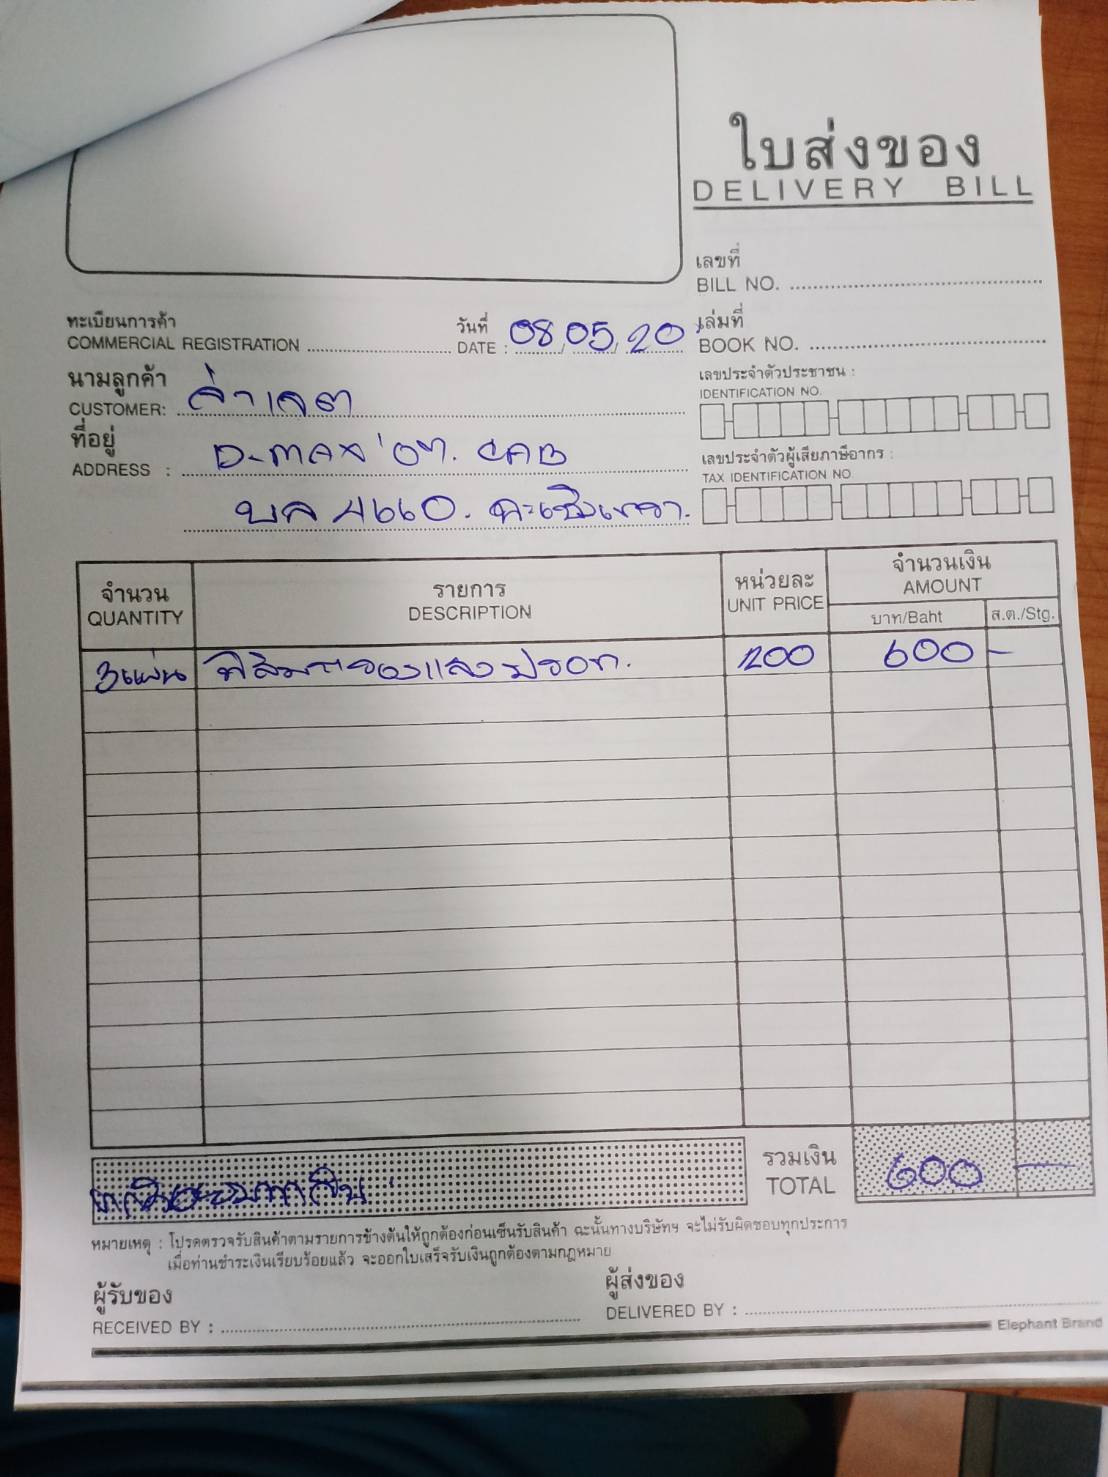 ใบส่งของ
DELIVERY BILL
เลขที่
BILL NO.
ทะเบียนการค้า
COMMERCIAL REGISTRATION
วันที่
DATE : 08/05/20
เล่มที่
BOOK NO.
นามลูกค้า
CUSTOMER:
เลขประจำตัวประชาชน :
IDENTIFICATION NO.
ที่อยู่
ADDRESS : D-MAX CAB
เลขประจำตัวผู้เสียภาษีอากร :
TAX IDENTIFICATION NO
บล 4660. ฉะเชิงเทรา.
จำนวน
QUANTITY
รายการ
DESCRIPTION
หน่วยละ
UNIT PRICE
จำนวนเงิน
AMOUNT
บาท/Baht
ส.ต./Stg.
3แผ่น ฟิล์มกรองแสง ปรอท. 200 600 -
รวมเงิน
TOTAL
600 -
หมายเหตุ : โปรดตรวจรับสินค้าตามรายการข้างต้นให้ถูกต้องก่อนเซ็นรับสินค้า ฉะนั้นทางบริษัทฯ จะไม่รับผิดชอบทุกประการ
เมื่อท่านชำระเงินเรียบร้อยแล้ว จะออกใบเสร็จรับเงินถูกต้องตามกฎหมาย
ผู้รับของ
RECEIVED BY :
ผู้ส่งของ
DELIVERED BY :
Elephant Brand